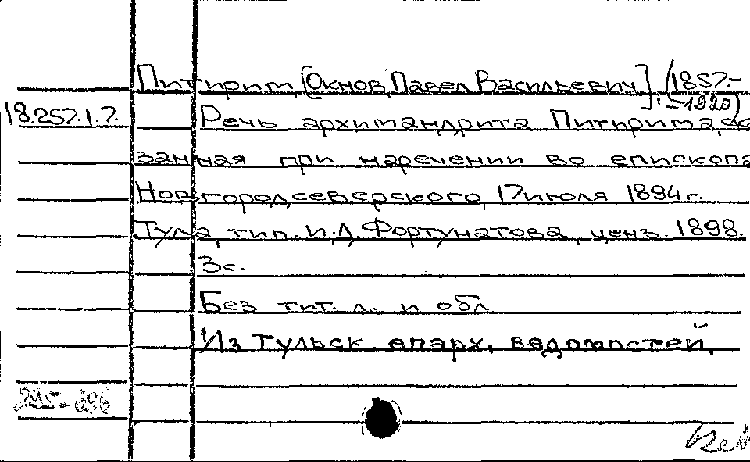 Питирим, [Окнов, Павел Васильевич] (1857-
-1920)
18.257.1.7.
Речь архимандрита Питирима, ска-
занная при наречении во епископа
Новгородсеверского, 17 июля 1894 г.
Тула, тип. И.Д. Фортунатова, ценз. 1898.
3 с.
Без тит. л. и обл.
Из Тульск. епарх. ведомостей.